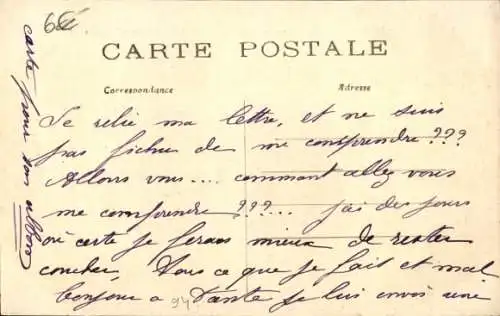 6
CARTE POSTALE
Correspondance
Adresse
Je relie ma lettre, et ne suis
pas fichue de me comprendre ???
Allons vous.... comment allez vous
me comprendre ???... j'ai des jours
où certe je ferais mieux de rester
couchée, Tous ce que je fait est mal
bonjour a Dante je lui envoi une
carte pour son album
94